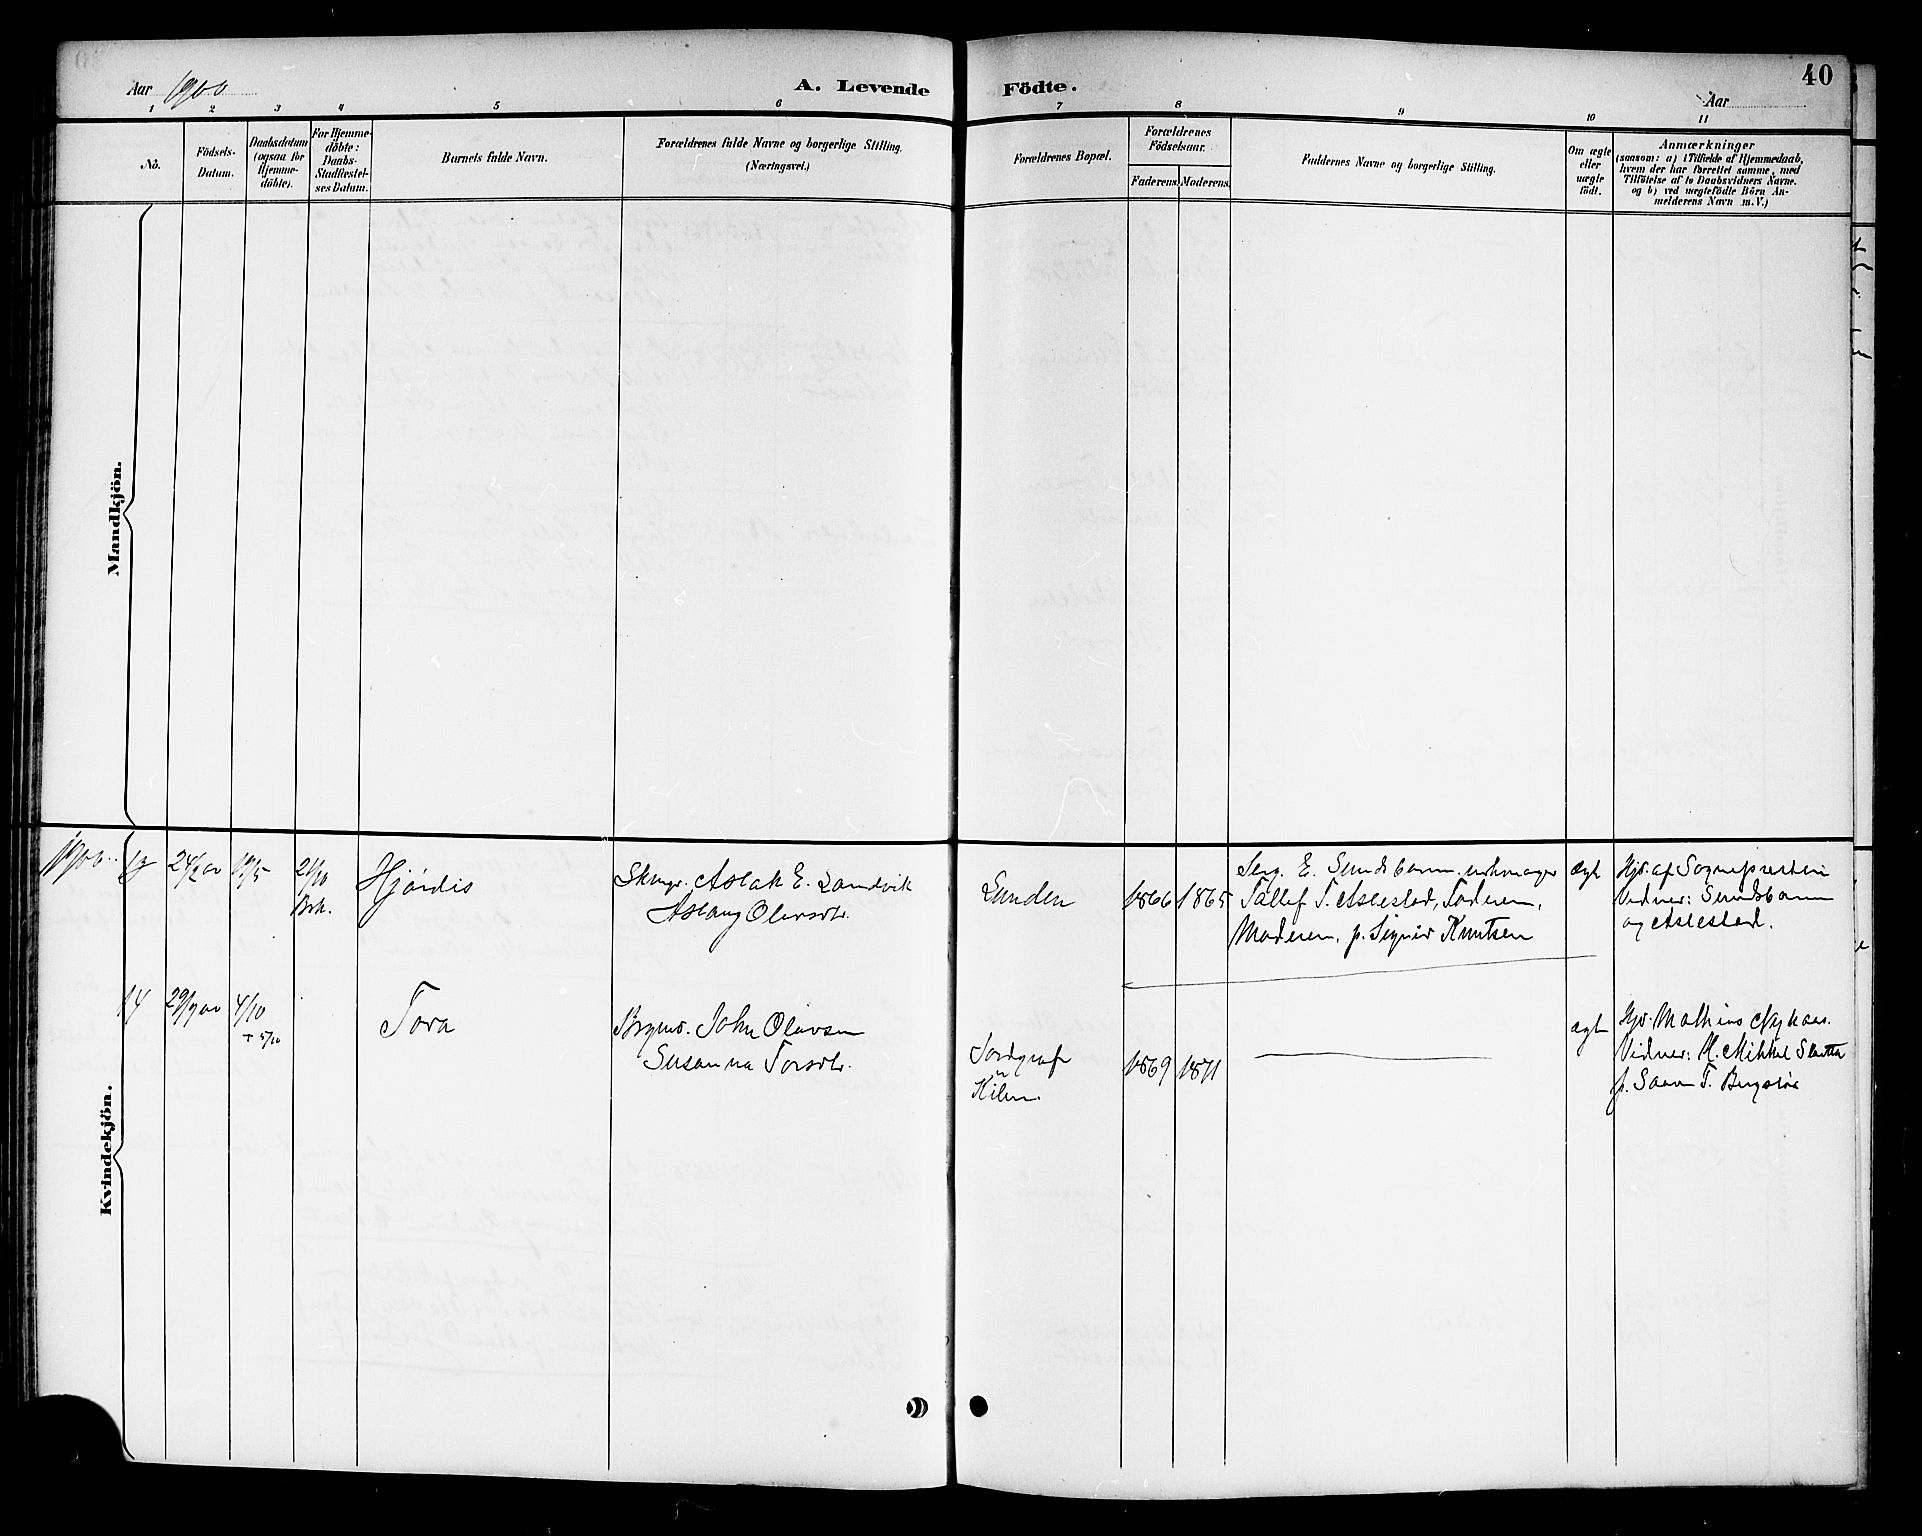 Aar 1900
A. Levende
Födte.
40
Aar
1 2 3 4 5 6 7 8 9 10 11
No.
Födsels-
Datum.
Daabsdatum
(ogsaa for
Hjemme-
döbte).
For Hjemme-
döbte:
Daabs-
Stadfæstel-
ses Datum.
Barnets fulde Navn.
Forældrenes fulde Navne og borgerlige Stilling.
(Næringsvei.)
Forældrenes Bopæl.
Forældrenes
Födselsaar.
Faderens.
Moderens.
Faddernes Navne og borgerlige Stilling.
Om ægte
eller
uægte
födt.
Anmærkninger
(saasom: a) i Tilfælde af Hjemmedaab,
hvem der har forrettet samme, med
Tilföielse af to Daabsvidners Navne.
og b) ved uægtefödte Börn An-
melderens Navn m. V.)
Mandkjön.
Kvindekjön.
1900
13
24/2 00
19/5
21/10
Brk.
Hjördis
Skmgr. Aslak E. Sandvik
Aslaug Olavsdtr.
Lunden
1866
1865
Serg. E. Sundsbarm,
Tallef T. Aslestad, Faderen,
Moderen, p. Signid Knutsen
ægt
Hjd. af Sognepresten
Vidner: Sundsbarm
og Aslestad.
14
29/9 00
4/10
+ 5/10
Tora
Brgmd. John Olavsen
Susanna Torsdtr.
Kilen.
1869
1871
ægt
Hjd. Mathias Nykaas.
Vidner: H. Mikkel Slaatta
p. Saave T. Bergstöe